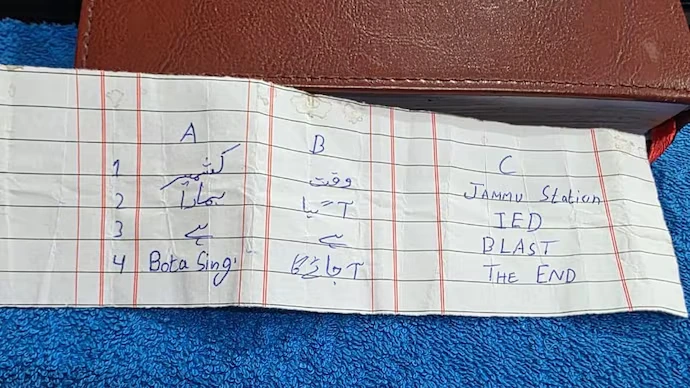 A B C
1 کشمیر وقت JAMMU Station
2 ہمارا آ گیا IED
3 ہے ہے BLAST
4 Bota Singh آ جائے گا THE END